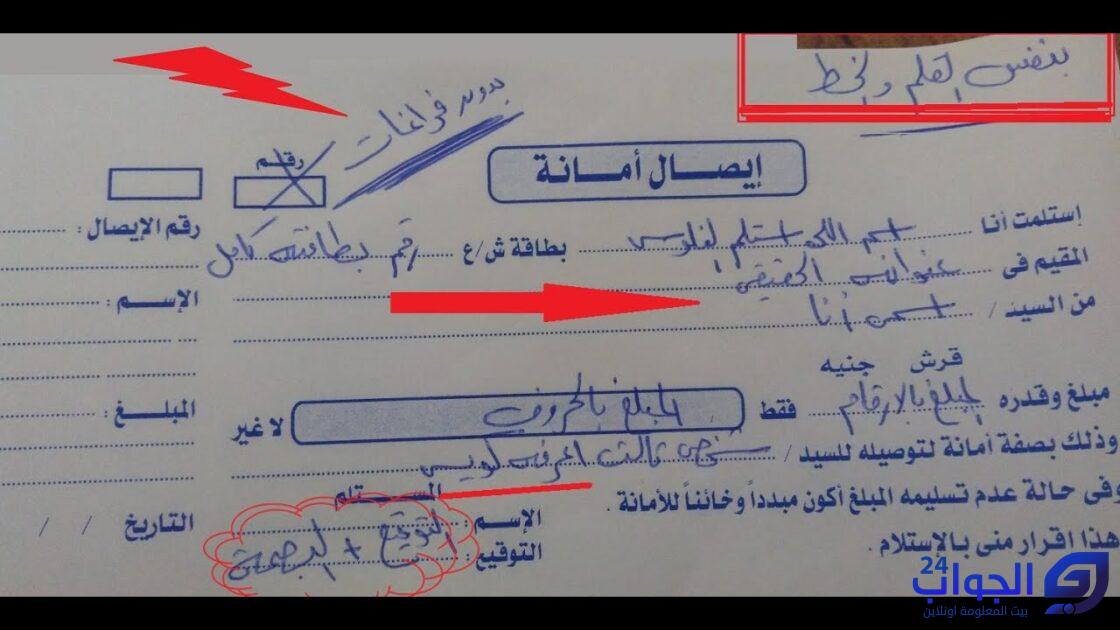 بنفس القلم والخط
بدون فراغات
رقم
إيصال أمانة
إستلمت أنا اسم اللى استلم الفلوس بطاقة ش/ع رقم بطاقته كامل
رقم الإيصال :
المقيم فى عنوانه الحقيقى
من السيد / اسمى أنا
الإسم :
قرش جنيه
مبلغ وقدره المبلغ بالارقام فقط المبلغ بالحروف لا غير
المبلغ :
وذلك بصفة أمانة لتوصيله للسيد / شخص ثالث اعرفه كويس
وفى حالة عدم تسليمه المبلغ أكون مبدداً وخائناً للأمانة .
هذا اقرار منى بالإستلام .
المستلم
الإسم :
التوقيع : التوقيع + البصمة
التاريخ / /
الجواب 24
بيت المعلومة اونلاين